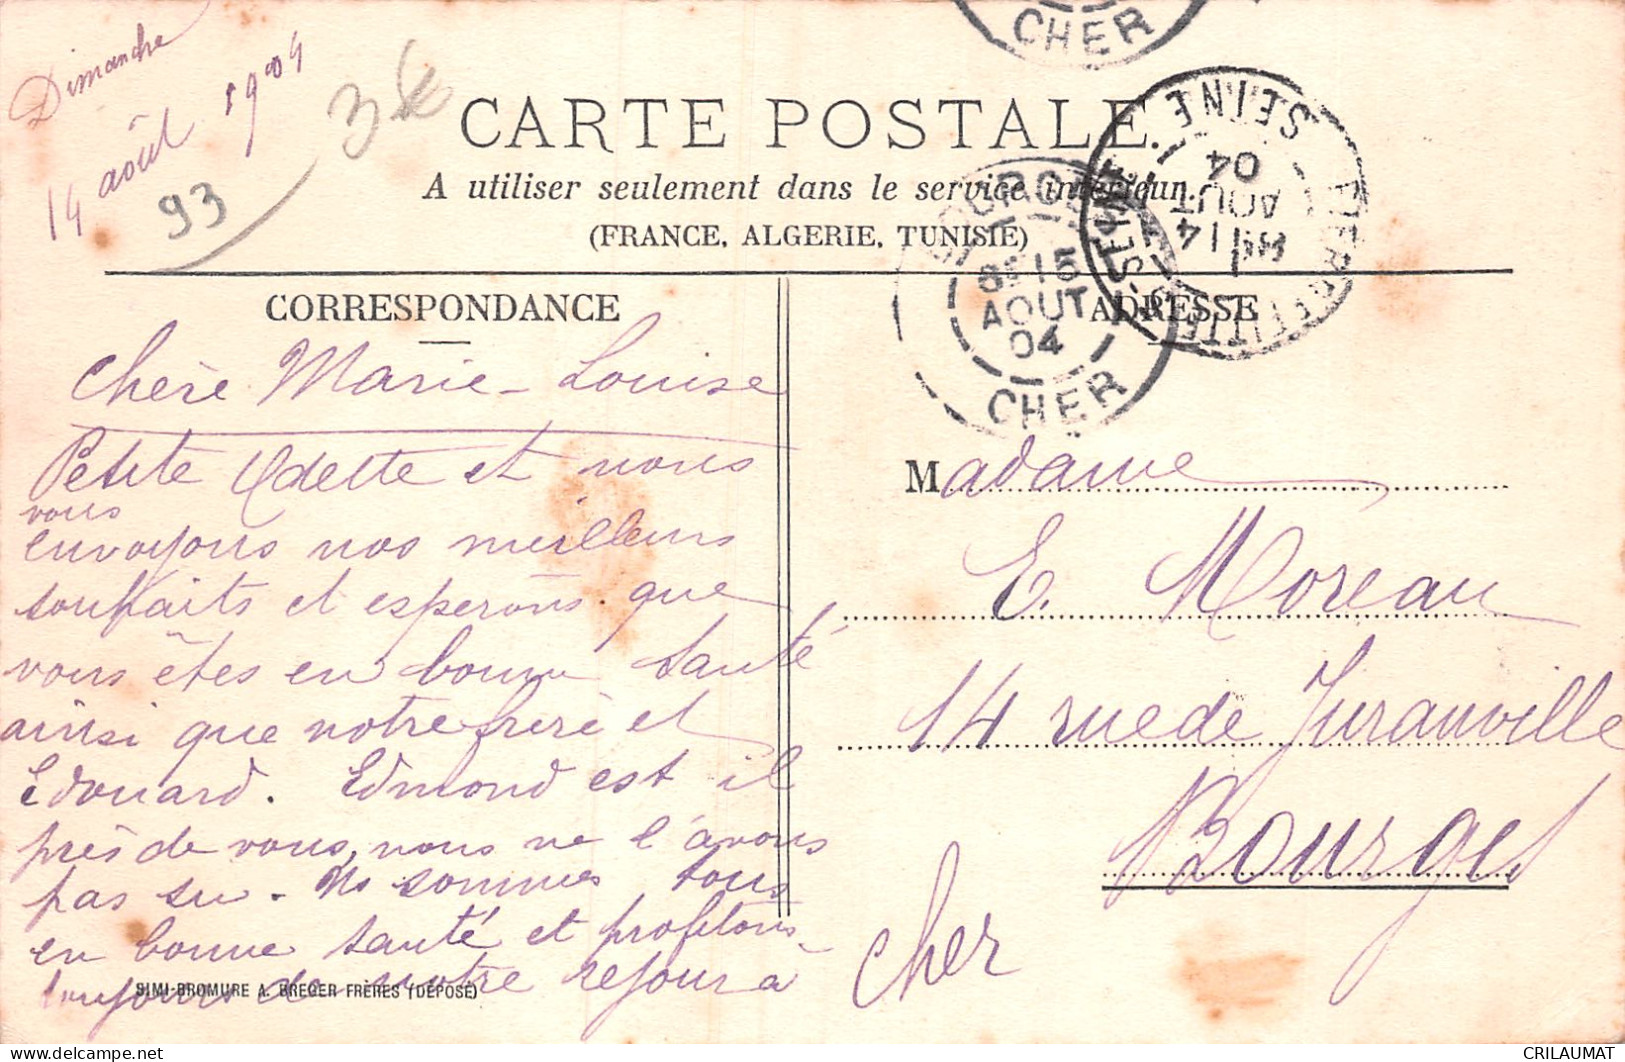 Dimanche
14 août 1904
3€
93
CHER
CARTE POSTALE.
A utiliser seulement dans le service intérieur.
(FRANCE, ALGERIE, TUNISIE)
PIERREFITTE-S-SEINE
SEINE
14
AOUT
04
BOURGES
8E 15
AOUT
04
CHER
CORRESPONDANCE
ADRESSE
Chère Marie-Louise
Petite Odette et nous
vous
envoyons nos meilleurs
souhaits et esperons que
vous êtes en bonne santé
ainsi que notre frère et
Edouard. Edmond est il
près de vous, nous ne l'avons
pas su. Ns sommes tous
en bonne santé et profitons
toujours de notre séjour à
SIMI-BROMURE A. BREGER FRÈRES (DÉPOSÉ)
Madame
E. Moreau
14 rue de Juranville
Bourges
Cher
CRILAUMAT